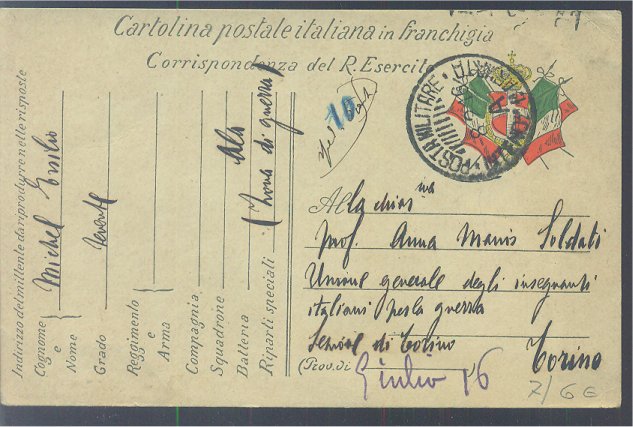 Cartolina postale italiana in franchigia
Corrispondenza del R. Esercito
Indirizzo del mittente da riprodurre nelle risposte
Cognome e Nome Michel Emilio
Grado
Reggimento e Arma
Compagnia
Squadrone
Batteria Ala
Riparti speciali (Zona di guerra)
10
POSTA MILITARE
Alla chias ma
Prof. Anna Manis Soldati
Unione generale degli insegnanti
italiani per la guerra
di Torino
(Prov. di ) Torino
Giulio 16
7/66